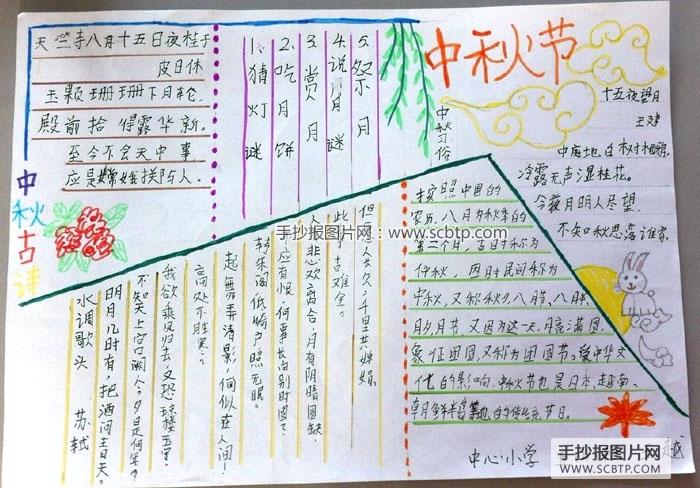 中秋节
天竺寺八月十五日夜桂子
皮日休
玉颗珊珊下月轮,
殿前拾得露华新。
至今不会天中事
应是嫦娥掷与人。
中秋古诗
中秋习俗
1.猜灯谜
2.吃月饼
3.赏月
4.说月谜
5.祭月
十五夜望月
王建
中庭地白树栖鸦,
冷露无声湿桂花。
今夜月明人尽望,
不知秋思落谁家。
水调歌头 苏轼
明月几时有,把酒问青天。
不知天上宫阙,今夕是何年?
我欲乘风归去,又恐琼楼玉宇,
高处不胜寒。
起舞弄清影,何似在人间!
转朱阁,低绮户,照无眠。
不应有恨,何事长向别时圆?
人有悲欢离合,月有阴晴圆缺,
此事古难全。
但愿人长久,千里共婵娟。
按照中国的
农历,八月为秋季的
第二个月,古时称为
仲秋,因此民间称为
中秋,又称秋夕,八月节,八月半,
月夕,月节,又因为这一天月亮满圆,
象征团圆,又称为团圆节。受中华文
化的影响,中秋节也是日本、越南、
朝鲜等地的传统节日。
中心小学
越
手抄报图片网
www.scbtp.com
手抄报图片网
WWW.SCBTP.COM